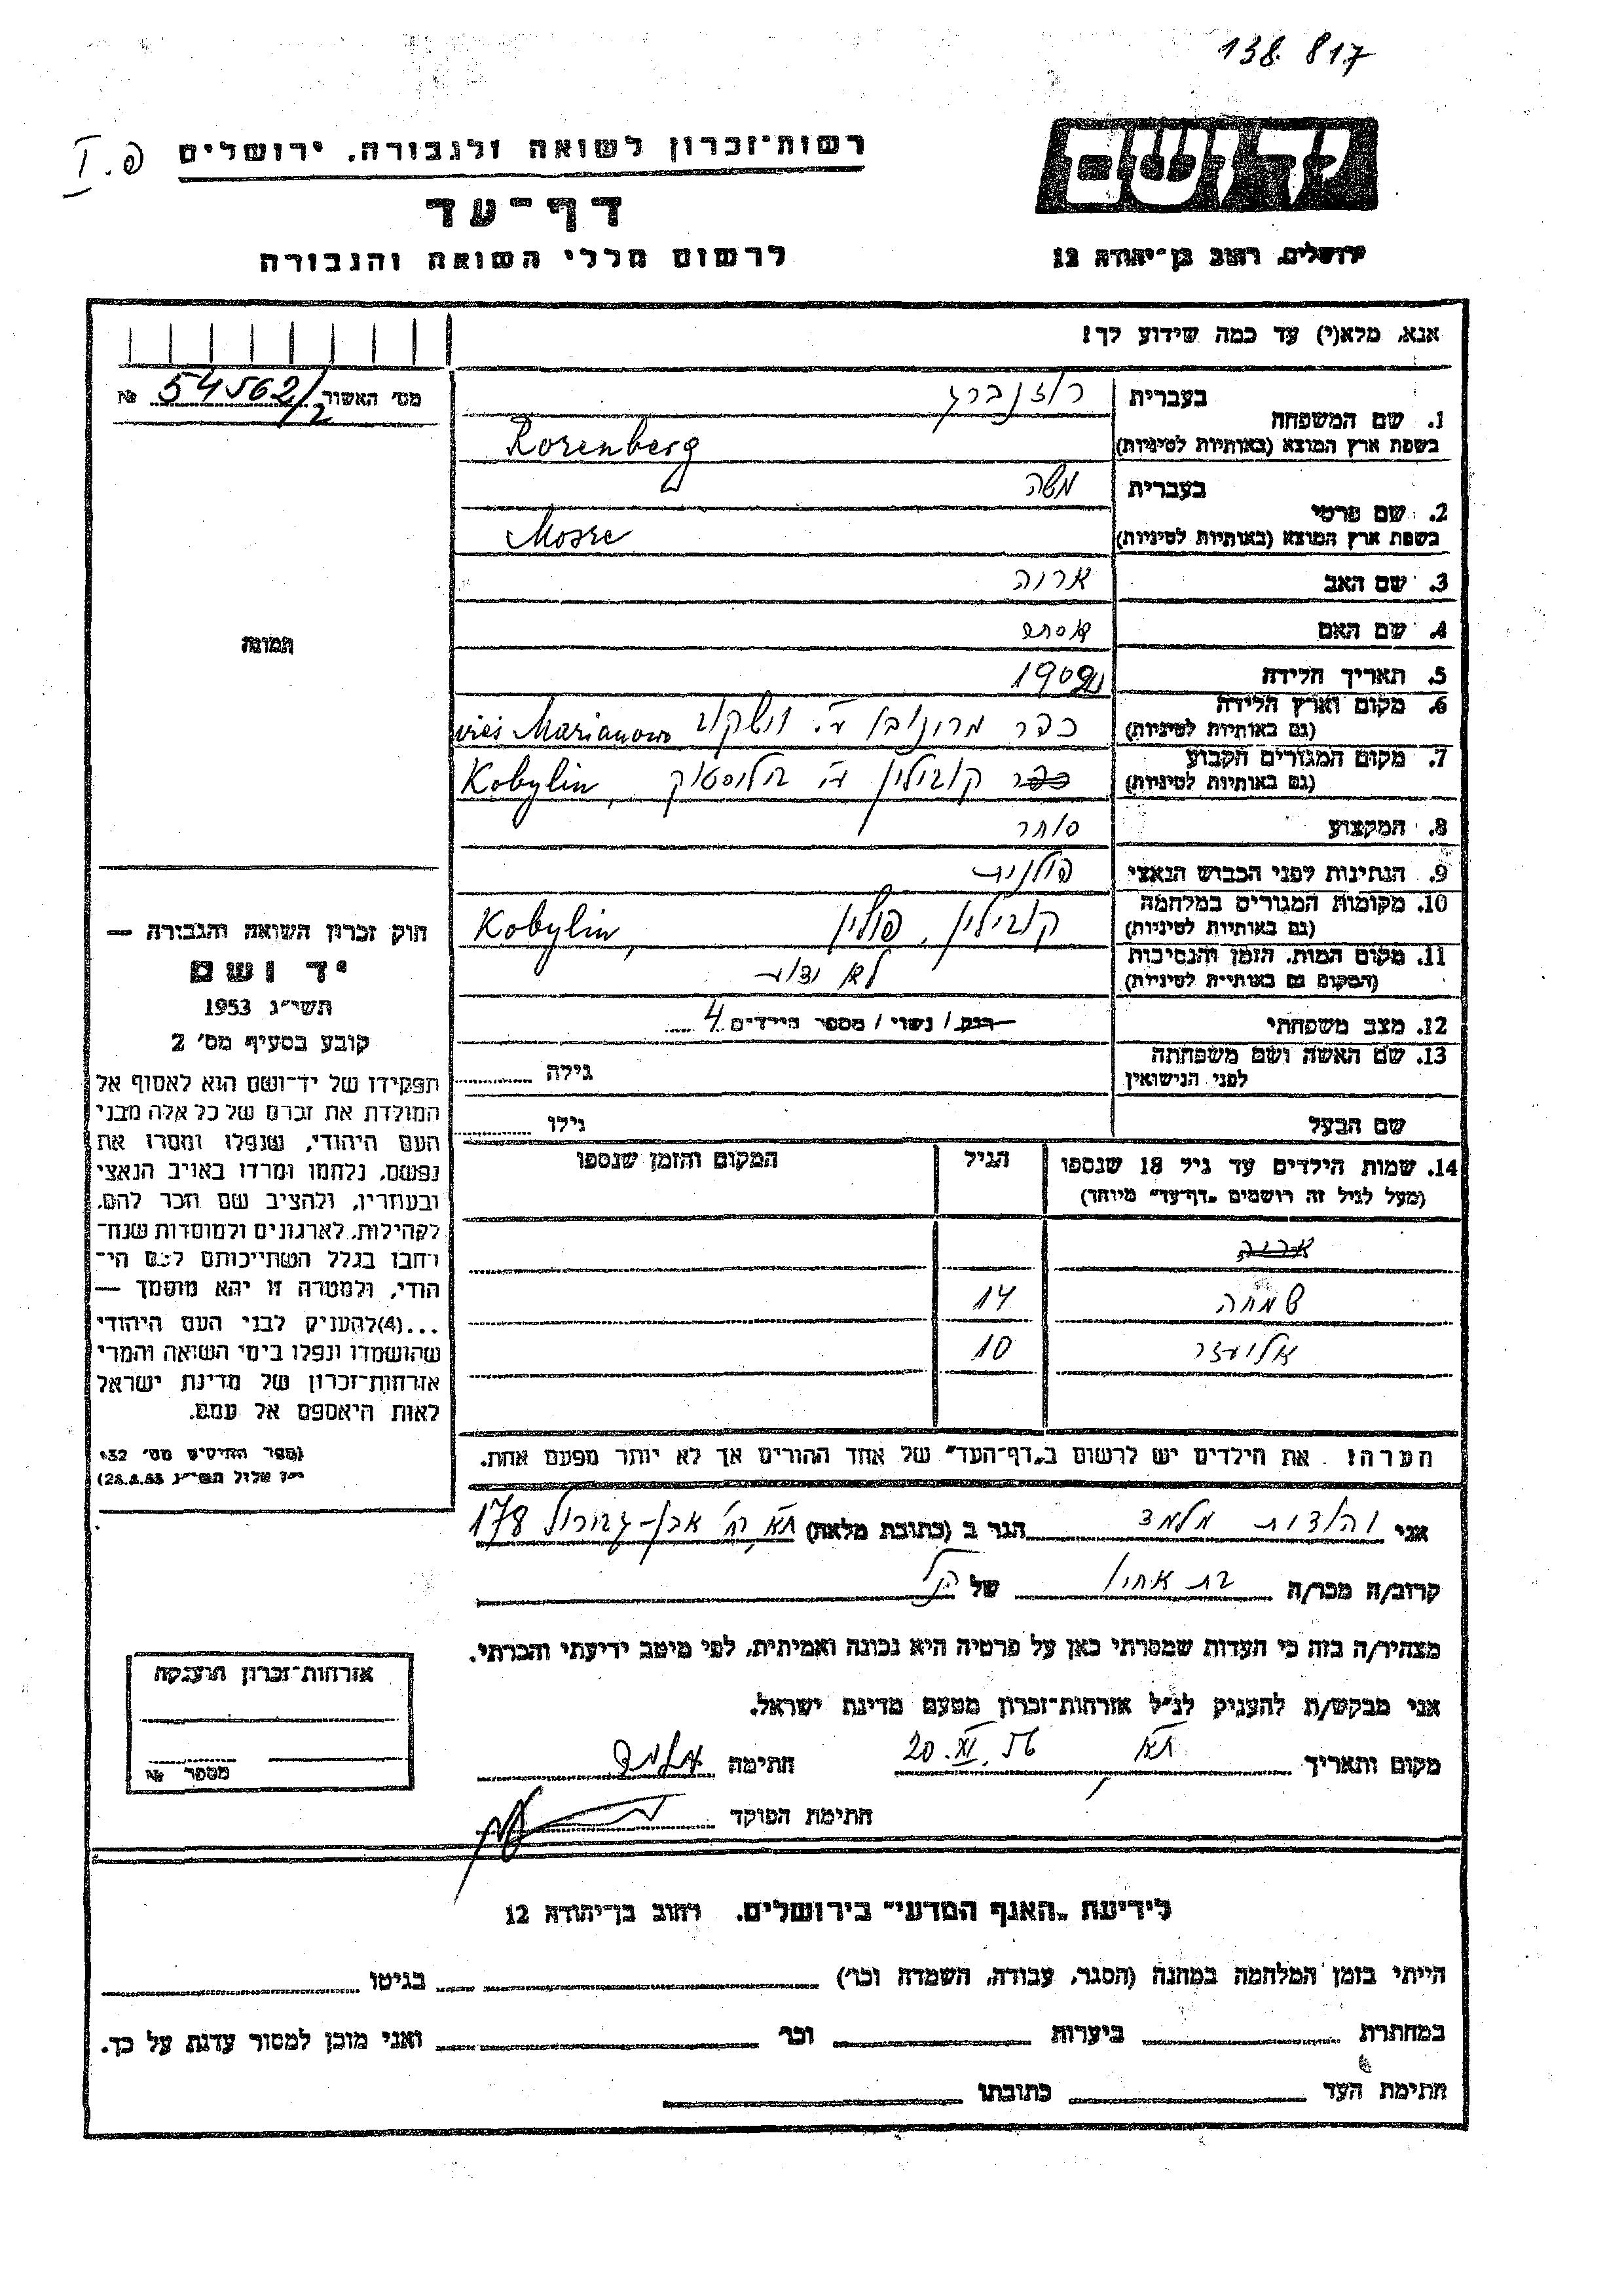 138 817
רשות־זכרון לשואה ולגבורה, ירושלים
פ. I
דף־עד
לרשום חללי השואה והגבורה
יד ושם
ירושלים, רחוב בן־יהודה 12
אנא, מלא(י) עד כמה שידוע לך!
מס׳ האשור 54562/2 №
1. שם המשפחה
בעברית רוזנברג
בשפת ארץ המוצא (באותיות לטיניות) Rosenberg
2. שם פרטי
בעברית משה
בשפת ארץ המוצא (באותיות לטיניות) Mosze
3. שם האב אריה
4. שם האם אסתר
5. תאריך הלידה
6. מקום וארץ הלידה
(גם באותיות לטיניות) כפר Marianowo
7. מקום המגורים הקבוע
(גם באותיות לטיניות) כפר קובילין ע״י ביליסטוק, Kobylin
8. המקצוע סוחר
9. הנתינות לפני הכבוש הנאצי פולנית
10. מקומות המגורים במלחמה
(גם באותיות לטיניות) קובילין, פולין, Kobylin
11. מקום המות, הזמן והנסיבות
(המקום גם באותיות לטיניות) לא ידוע
12. מצב משפחתי רווק / נשוי / מספר הילדים 4
13. שם האשה ושם משפחתה
לפני הנישואין
גילה
שם הבעל
גילו
14. שמות הילדים עד גיל 18 שנספו
(מעל לגיל זה רושמים „דף־עד״ מיוחד)
הגיל
המקום והזמן שנספו
אריה
שמחה 14
אליעזר 10
הערה! את הילדים יש לרשום ב„דף־העד״ של אחד ההורים אך לא יותר מפעם אחת.
תמונה
חוק זכרון השואה והגבורה —
יד ושם
תשי״ג 1953
קובע בסעיף מס׳ 2
תפקידו של יד־ושם הוא לאסוף אל
המולדת את זכרם של כל אלה מבני
העם היהודי, שנפלו ומסרו את
נפשם, נלחמו ומרדו באויב הנאצי
ובעוזריו, ולהציב שם וזכר להם,
לקהילות, לארגונים ולמוסדות שנח־
רבו בגלל השתייכותם לעם הי־
הודי, ולמטרה זו יהא מוסמך —
...(4)להעניק לבני העם היהודי
שהושמדו ונפלו בימי השואה והמרי
אזרחות־זכרון של מדינת ישראל
לאות היאספם אל עמם.
(ספר החוקים מס׳ 132
י״ז אלול תשי״ג 28.8.53)
אני יהודית מלמד הגר ב (כתובת מלאה) ת״א רח׳ אבן־גבירול 178
קרוב/ה מכר/ה בת אחיו של הנ״ל
מצהיר/ה בזה כי העדות שמסרתי כאן על פרטיה היא נכונה ואמיתית, לפי מיטב ידיעתי והכרתי.
אני מבקש/ת להעניק לנ״ל אזרחות־זכרון מטעם מדינת ישראל.
מקום ותאריך ת״א, 20.XI.56 חתימה
חתימת הפוקד
אזרחות־זכרון הוענקה
מספר №
לידיעת „האגף המדעי״ בירושלים, רחוב בן־יהודה 12
הייתי בזמן המלחמה במחנה (הסגר, עבודה, השמדה וכו׳) בגיטו
במחתרת ביערות וכו׳ ואני מוכן למסור עדות על כך.
חתימת העד כתובתו